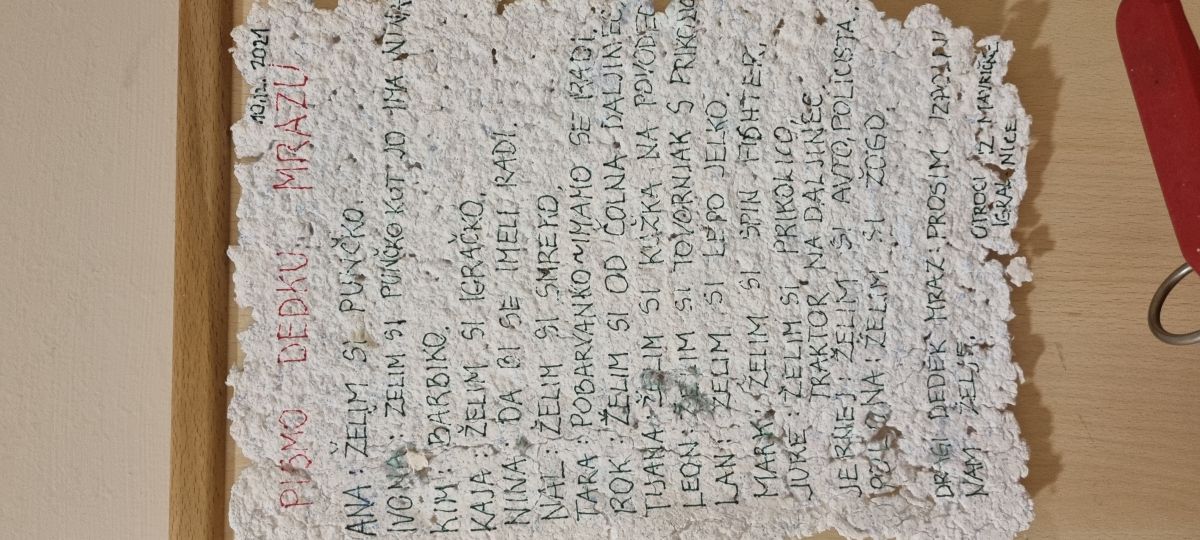 10.12. 2021
PISMO DEDKU MRAZU
ANA: ŽELIM SI PUNČKO.
IVONA: ŽELIM SI PUNČKO KOT JO IMA NINA
KIM: BARBIKO.
KAJA: ŽELIM SI IGRAČKO.
NINA: DA BI SE IMELI RADI.
NAL: ŽELIM SI SMREKO.
TARA: POBARVANKO IMAMO SE RADI.
ROK: ŽELIM SI OD ČOLNA DALJINEC
TIJANA: ŽELIM SI KUŽKA NA POVODEC
LEON: ŽELIM SI TOVORNJAK S PRIKOLICO
LAN: ŽELIM SI LEPO JELKO.
MARK: ŽELIM SI SPIN FIGHTER.
JURE: ŽELIM SI PRIKOLICO,
TRAKTOR NA DALJINEC.
JERNEJ: ŽELIM SI AVTO, POLICISTA.
ŽELIM SI ŽOGO.
DRAGI DEDEK MRAZ PROSIM IZPOLNI
NAM ŽELJE.
OTROCI IZ MAVRIČNE
IGRALNICE